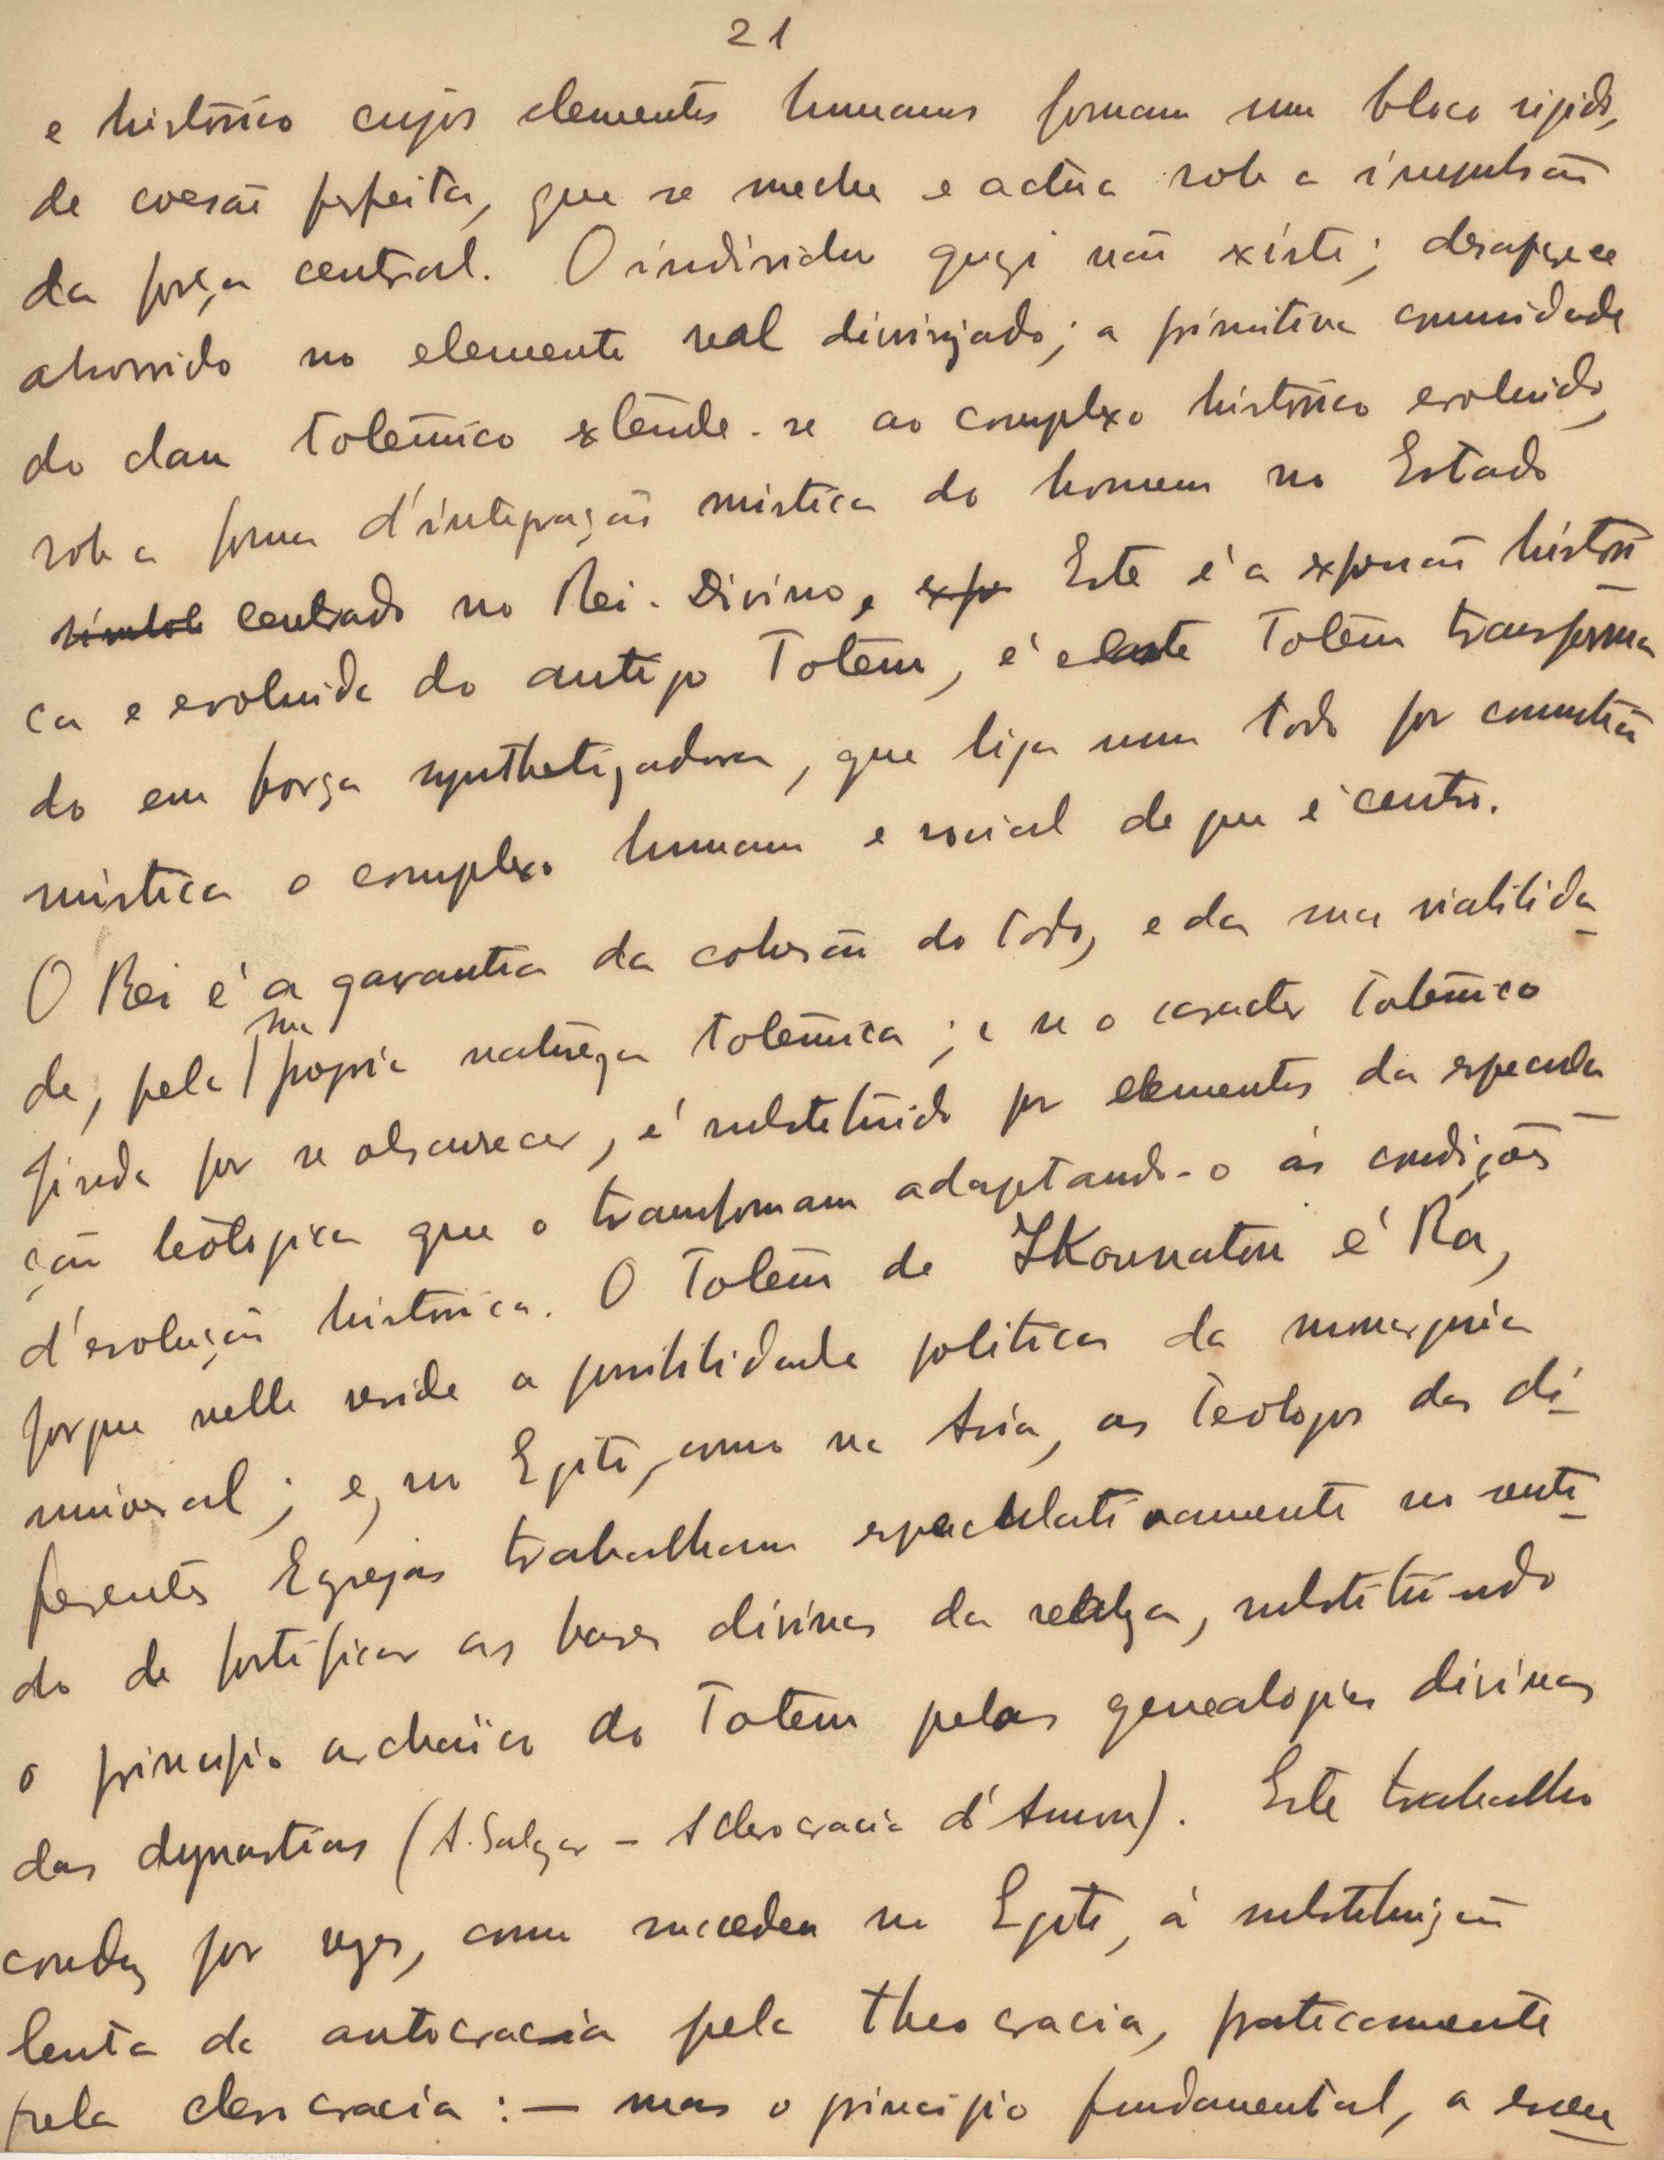 21
e historico cujos elementos humanos formam um bloco rigido,
de coesão perfeita, que se meche e actúa sob a impulsão
da força central. O individuo quazi não existe; desaparece
absorvido no elemento real divinizado; a primitiva comunidade
do clan totémico exténde-se ao complexo historico evoluido,
sob a forma d'integração mistica do homem no Estado
centrado no Rei-Divino, Este é a expressão histori
ca e evoluida do antigo Totem, é este Totem transforma
do em força synthetizadora, que liga num todo por comunhão
mistica o complexo humano e social de que é centro.
O Rei é a garantia da cohesão do todo, e da sua viabilida
de, pela sua propria naturêza totémica; e se o caracter totémico
finda por se obscurecer, é substituido por elementos da especula
ção teologica que o transformam adaptando-o ás condições
d'evolução historica. O Totem de Ikounaton é Ra,
porque nelle reside a possibilidade politica da monarquia
universal; e, no Egito, como na Asia, os Teologos das di
ferentes Egrejas trabalham especulativamente no senti
do de fortificar as bases divinas da realeza, substituindo
o principio archaïco do Totem pelas genealogias divinas
das dynastias (A. Salgar - A clerocracia d'Amon). Este trabalho
conduz por vezes, como succedeu no Egito, á substituição
lenta da autocracia pela theocracia, praticamente
pela clerocracia: — mas o principio fundamental, a essen